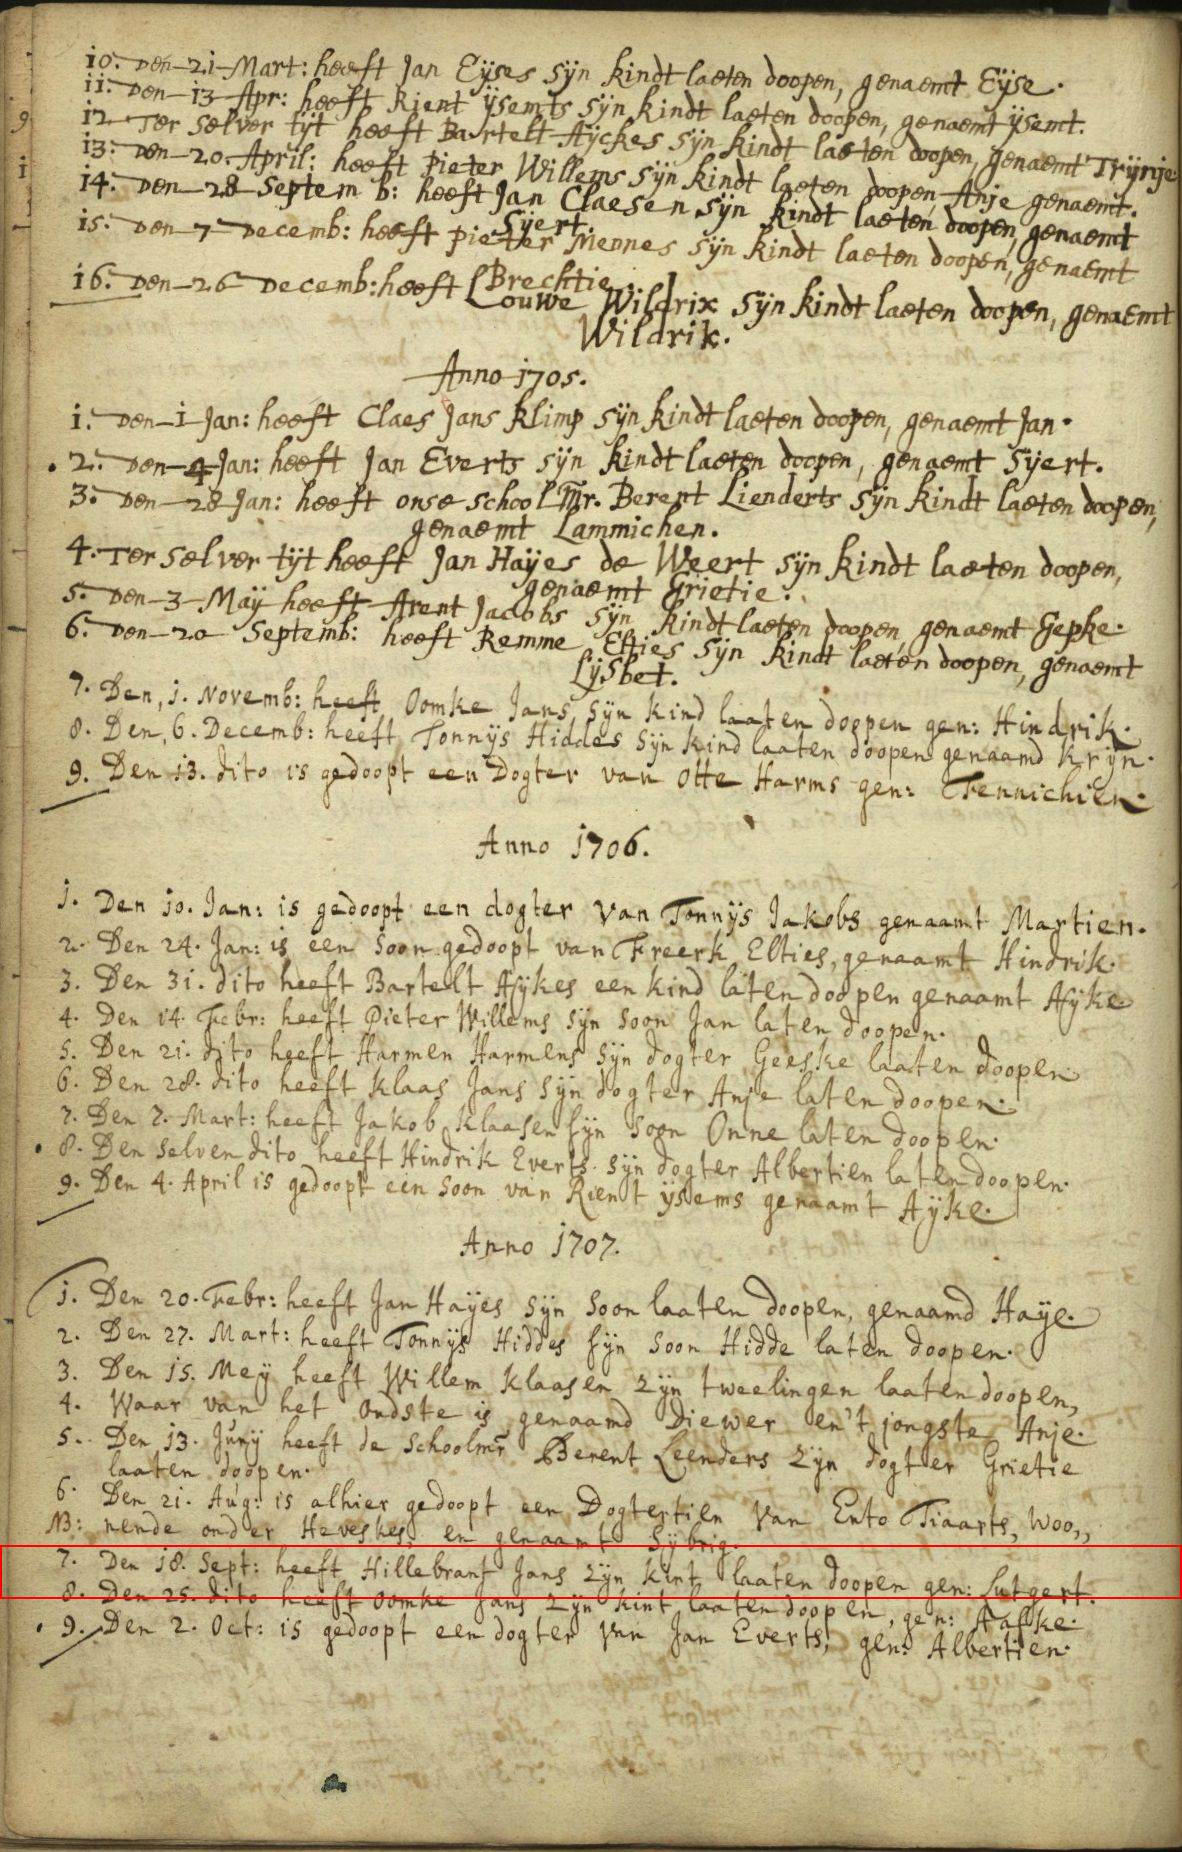 10. Den 21 Mart: heeft Jan Eÿses sÿn kindt laeten doopen, genaemt Eÿse.
11. Den 13 Apr: heeft Rient ÿsemts sÿn kindt laeten doopen, genaemt ÿsemt.
12 Ter selver tÿt heeft Bartelt Aÿckes sÿn kindt laeten doopen, genaemt Trÿnje
13: Den 20. April: heeft Pieter Willems sÿn kindt laeten doopen, Anje genaemt.
14. Den 28 Septem b: heeft Jan Claesen sÿn kindt laeten doopen, genaemt
Sÿert.
15. Den 7 Decemb: heeft pieter Mennes sÿn kindt laeten doopen, genaemt
Brechtie.
16. Den 26 Decemb: heeft Louwe Wildrix sÿn kindt laeten doopen, genaemt
Wildrik.
Anno 1705.
1. Den 1 Jan: heeft Claes Jans klimp sÿn kindt laeten doopen, genaemt Jan.
2. Den 4 Jan: heeft Jan Everts sÿn kindt laeten doopen, genaemt Sÿert.
3. Den 28 Jan: heeft onse school Mr. Berent Lienderts sÿn kindt laeten doopen,
genaemt Lammichen.
4. Ter selver tÿt heeft Jan Haÿes de Weert sÿn kindt laeten doopen,
genaemt Grietie.
5. Den 3 Maÿ heeft Arent Jacobs sÿn kindt laeten doopen, genaemt Gepke.
6. Den 20 Septemb: heeft Remme Elties sÿn kindt laeten doopen, genaemt
Lÿsbet.
7. Den, 1. Novemb: heeft Oomke Jans sÿn kind laaten doopen gen: Hindrik.
8. Den, 6. Decemb: heeft Tonnÿs Hiddes sÿn kind laaten doopen genaamd Krÿn.
9. Den 13. dito is gedoopt een Dogter van Otte Harms gen: Fennichien.
Anno 1706.
1. Den 10. Jan: is gedoopt een dogter van Tonnÿs Jakobs genaamt Martien.
2. Den 24. Jan: is een soon gedoopt van Freerk Elties, genaamt Hindrik.
3. Den 31. dito heeft Bartelt Aÿkes een kind laten doopen genaamt Aÿke
4. Den 14. Febr: heeft Pieter Willems sÿn soon Jan laten doopen.
5. Den 21. dito heeft Harmen Harmens sÿn dogter Geeske laaten doopen
6. Den 28. dito heeft Klaas Jans sÿn dogter Anje laten doopen.
7. Den 7. Mart: heeft Jakob Klaasen sÿn soon Onne laten doopen.
8. Den selven dito heeft Hindrik Everts sÿn dogter Albertien laten doopen.
9. Den 4. April is gedoopt een soon van Rient ÿsems genaamt Aÿke.
Anno 1707.
1. Den 20. Febr: heeft Jan Haÿes sÿn soon laaten doopen, genaamd Haÿe.
2. Den 27. Mart: heeft Tonnÿs Hiddes sÿn soon Hidde laten doopen.
3. Den 15. Meÿ heeft Willem Klaasen zÿn tweelingen laaten doopen,
4. Waar van het oudste is genaamd Diewer en't jongste Anje.
5. Den 13. Junÿ heeft de Schoolmr Berent Leenders zÿn dogter Grietie
laaten doopen.
6. Den 21. Aug: is alhier gedoopt een Dogtertien van Ento Tiaarts, woo,,
NB: nende onder Heveskes, en genaamt Sÿbrig.
7. Den 18. Sept: heeft Hillebrant Jans zÿn kint laaten doopen gen: Lutgert.
8. Den 25. dito heeft Oomke Jans zÿn kint laaten doopen, gen: Aafke.
9. Den 2. Oct: is gedoopt een dogter van Jan Everts, gen: Albertien.